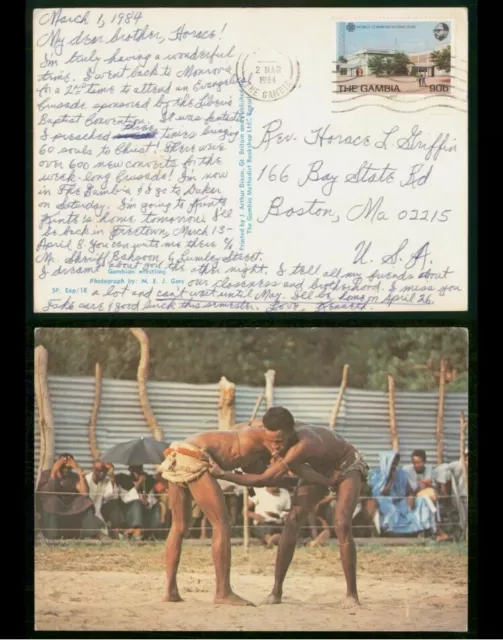 March 1, 1984
My dear brother, Horace!
I'm truly having a wonderful
time. I went back to Monrovia
for a 2nd time to attend an Evangelical
Crusade sponsored by the Liberia
Baptist Convention. It was fantastic
I preached three times
60 souls to Christ! There were
over 600 new converts for the
week-long Crusade! I'm now
in The Gambia & go to Dakar
on Saturday. I'm going to
home tomorrow. I'll
be back in Freetown, March 13-
April 8. You can write me there c/o
Mr. Sheriff 6 Lumley Street.
I dreamt about you the other night. I tell all my friends about
our closeness and brotherhood. I miss you
a lot and can't wait until May. I'll be home on April 26.
Take care & good luck this semester. Love,
Gambian wrestling
Photograph by: M. E. J. Gore
SP. Exp/18
Printed by J. Arthur Dixon, Gt. Britain
The Gambia Methodist Bookshop Ltd.
2 MAR
1984
THE GAMBIA
THE GAMBIA 90b
Rev. Horace L Griffin
166 Bay State Rd
Boston, Ma 02215
U.S.A.